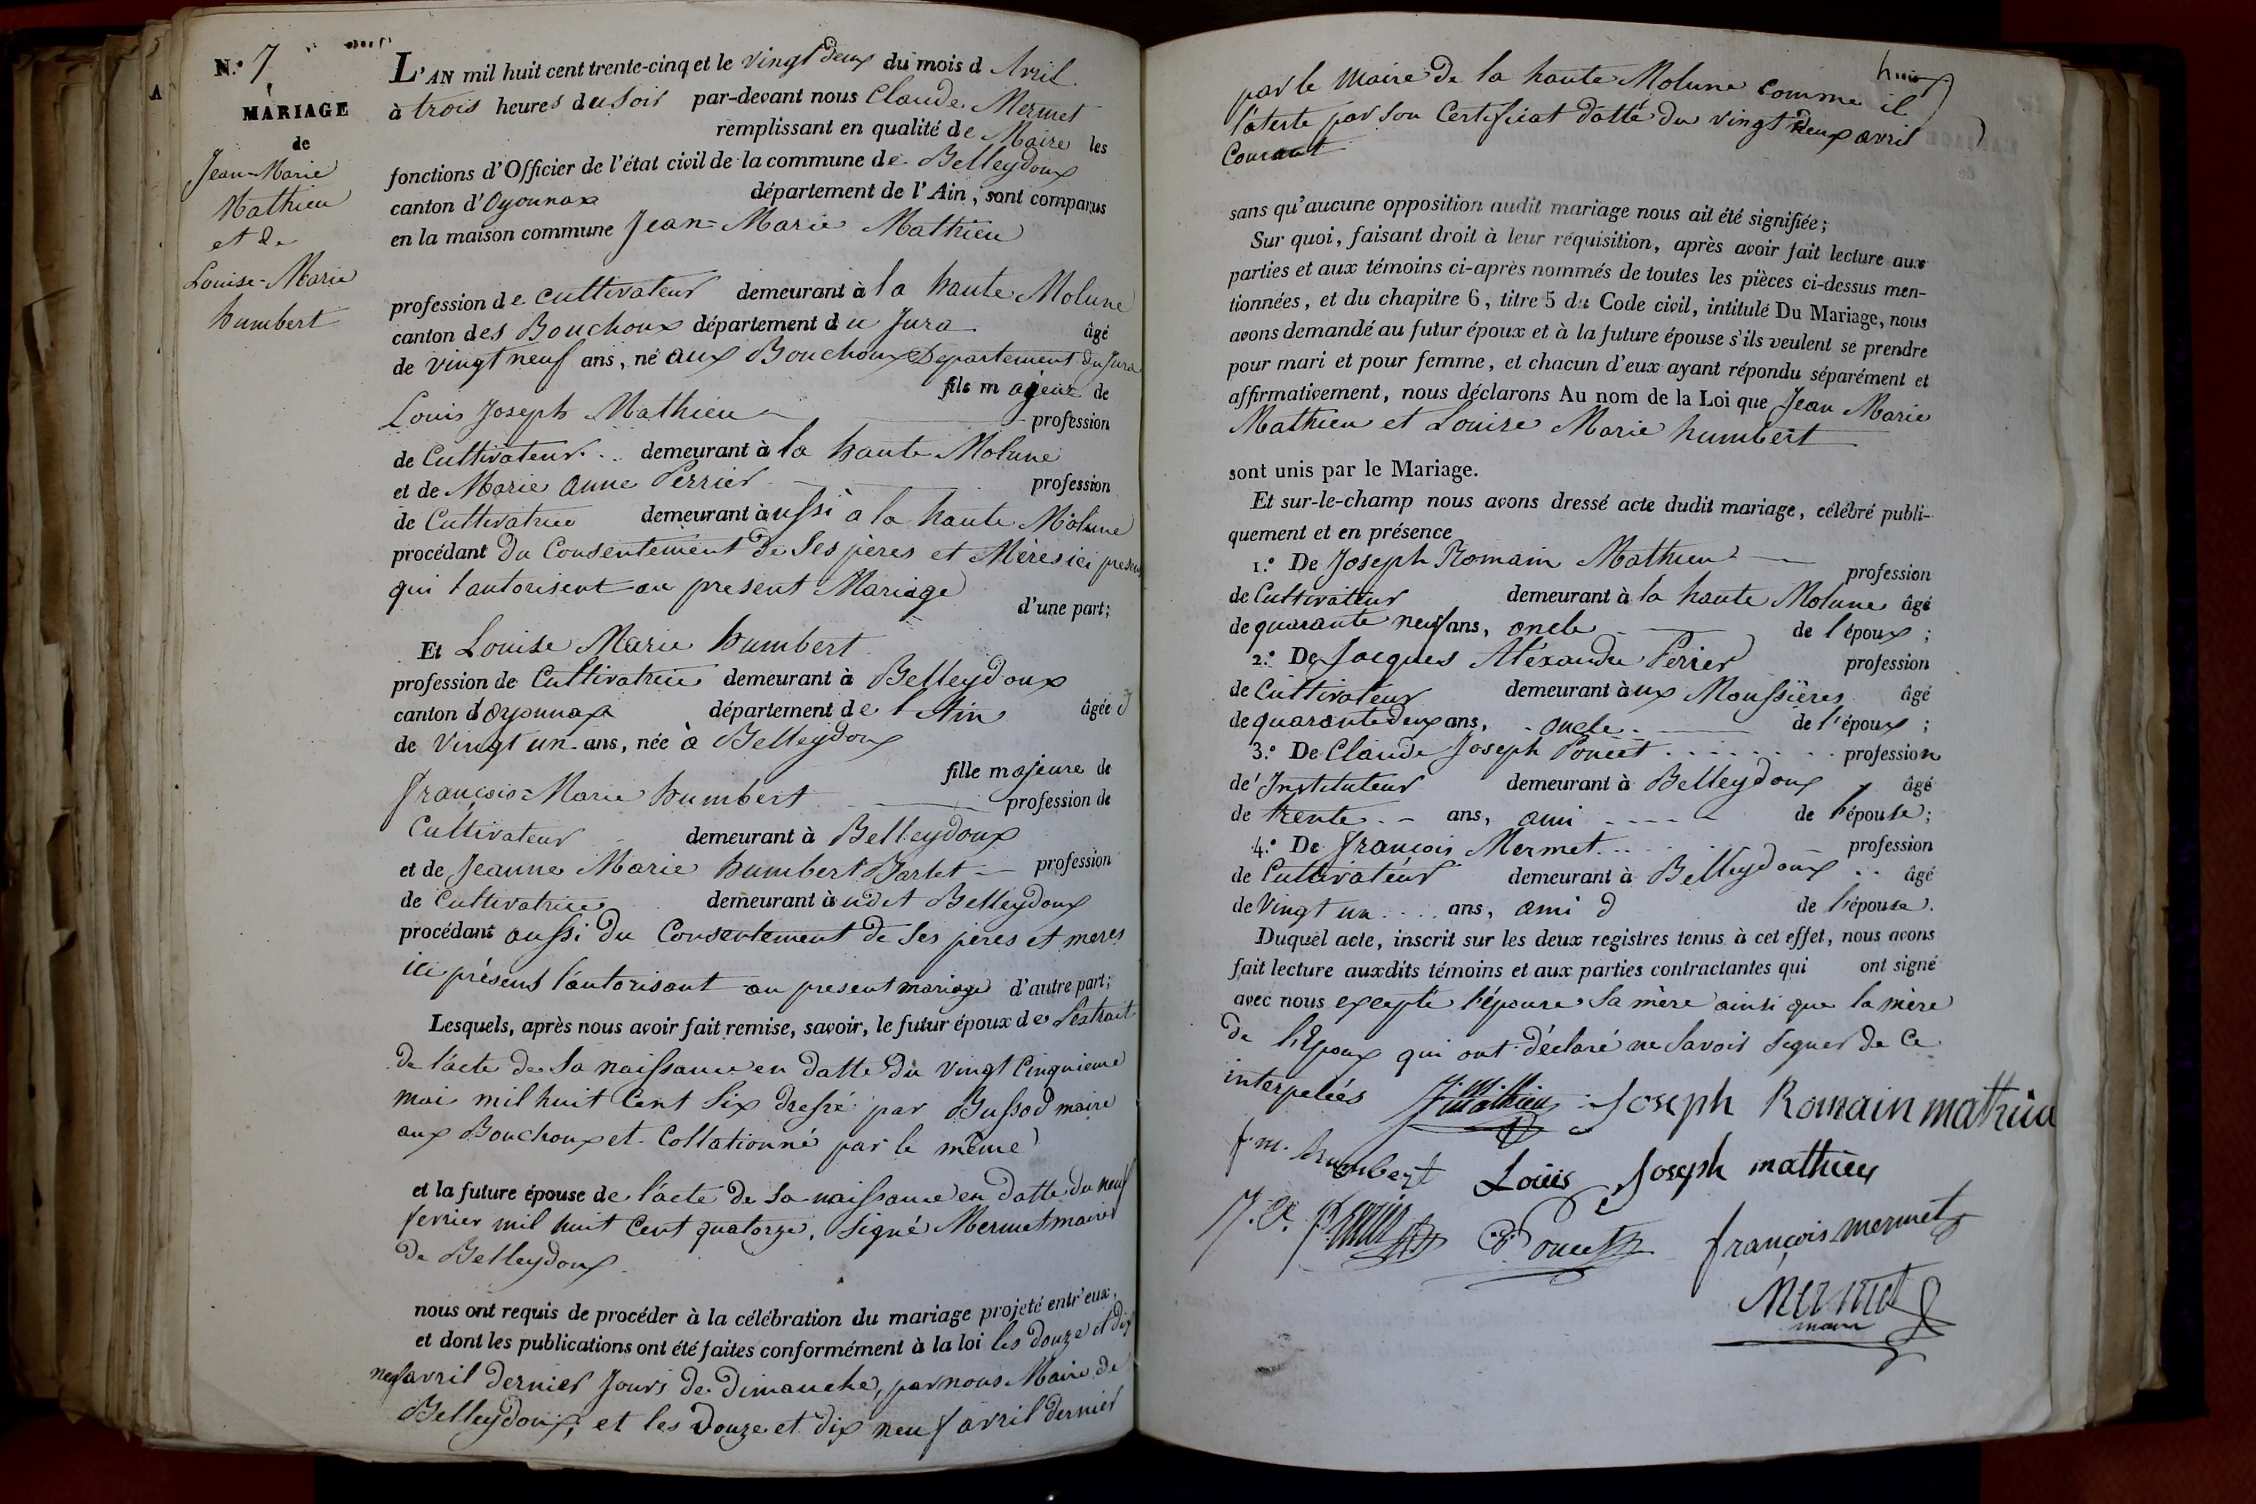 N.° 7
MARIAGE
de
Jean-Marie
Mathieu
et de
Louise-Marie
humbert
A
L'AN mil huit cent trente-cinq et le vingt deux du mois d Avril
à trois heures du soir par-devant nous Claude Mermet
remplissant en qualité de Maire les
fonctions d'Officier de l'état civil de la commune de Belleydoux
canton d'Oyonnax département de l'Ain, sont comparus
en la maison commune Jean-Marie Mathieu
profession de cultivateur demeurant à la haute Molune
canton des Bouchoux département du Jura âgé
de vingt neuf ans, né aux Bouchoux Departement du Jura
fils majeur de
Louis Joseph Mathieu profession
de Cultivateur demeurant à la haute Molune
et de Marie anne Perrier profession
de Cultivatrice demeurant aussi a la haute Molune
procédant du Consentement de Ses pères et Mères ici presens
qui l'autorisent au present Mariage
d'une part;
Et Louise Marie humbert
profession de Cultivatrice demeurant à Belleydoux
canton d'oyonnax département de l'Ain âgée
de Vingt un ans, née à Belleydoux
fille majeure de
François-Marie humbert profession de
Cultivateur demeurant à Belleydoux
et de Jeanne Marie humbert Barlet profession
de Cultivatrice demeurant audit Belleydoux
procédant aussi du Consentement de Ses pères et meres
ici présens l'autorisant au present mariage d'autre part;
Lesquels, après nous avoir fait remise, savoir, le futur époux de l'extrait
de l'acte de Sa naissance en datte du vingt Cinquieme
mai mil huit Cent Six dressé par Bussod maire
aux Bouchoux et Collationné par le même
et la future épouse de l'acte de Sa naissance en datte du neuf
fevrier mil huit Cent quatorze, Signé Mermet maire
de Belleydoux
nous ont requis de procéder à la célébration du mariage projeté entr'eux,
et dont les publications ont été faites conformément à la loi les douze et dix
neuf avril dernier Jours de dimanche, par nous Maire de
Belleydoux, et les Douze et dix neuf avril dernier
huit
par le Maire de la haute Molune comme il
l'ateste par Son Certificat datté du vingt deux avril
Courant
sans qu'aucune opposition audit mariage nous ait été signifiée;
Sur quoi, faisant droit à leur réquisition, après avoir fait lecture aux
parties et aux témoins ci-après nommés de toutes les pièces ci-dessus men-
tionnées, et du chapitre 6, titre 5 du Code civil, intitulé Du Mariage, nous
avons demandé au futur époux et à la future épouse s'ils veulent se prendre
pour mari et pour femme, et chacun d'eux ayant répondu séparément et
affirmativement, nous déclarons Au nom de la Loi que Jean Marie
Mathieu et Louise Marie humbert
sont unis par le Mariage.
Et sur-le-champ nous avons dressé acte dudit mariage, célébré publi-
quement et en présence
1.° De Joseph Romain Mathieu profession
de Cultivateur demeurant à la haute Molune âgé
de quarante neuf ans, oncle de l'époux;
2.° De Jacques Aléxandre Perier profession
de Cultivateur demeurant aux Moussières âgé
de quarante deux ans, oncle de l'époux;
3.° De Claude Joseph Poncet profession
de Instituteur demeurant à Belleydoux âgé
de trente ans, ami de l'épouse;
4.° De François Mermet profession
de Cultivateur demeurant à Belleydoux âgé
de Vingt un ans, ami d de l'épouse.
Duquel acte, inscrit sur les deux registres tenus à cet effet, nous avons
fait lecture auxdits témoins et aux parties contractantes qui ont signé
avec nous excepté l'épouse Sa mère ainsi que la mère
de l'époux qui ont déclaré ne Savoir Signer de Ce
interpelées J. Mathieu Joseph Romain mathieu
f. m. humbert Louis Joseph mathieu
J. A. Perrier Poncet françois mermet
Mermet
maire